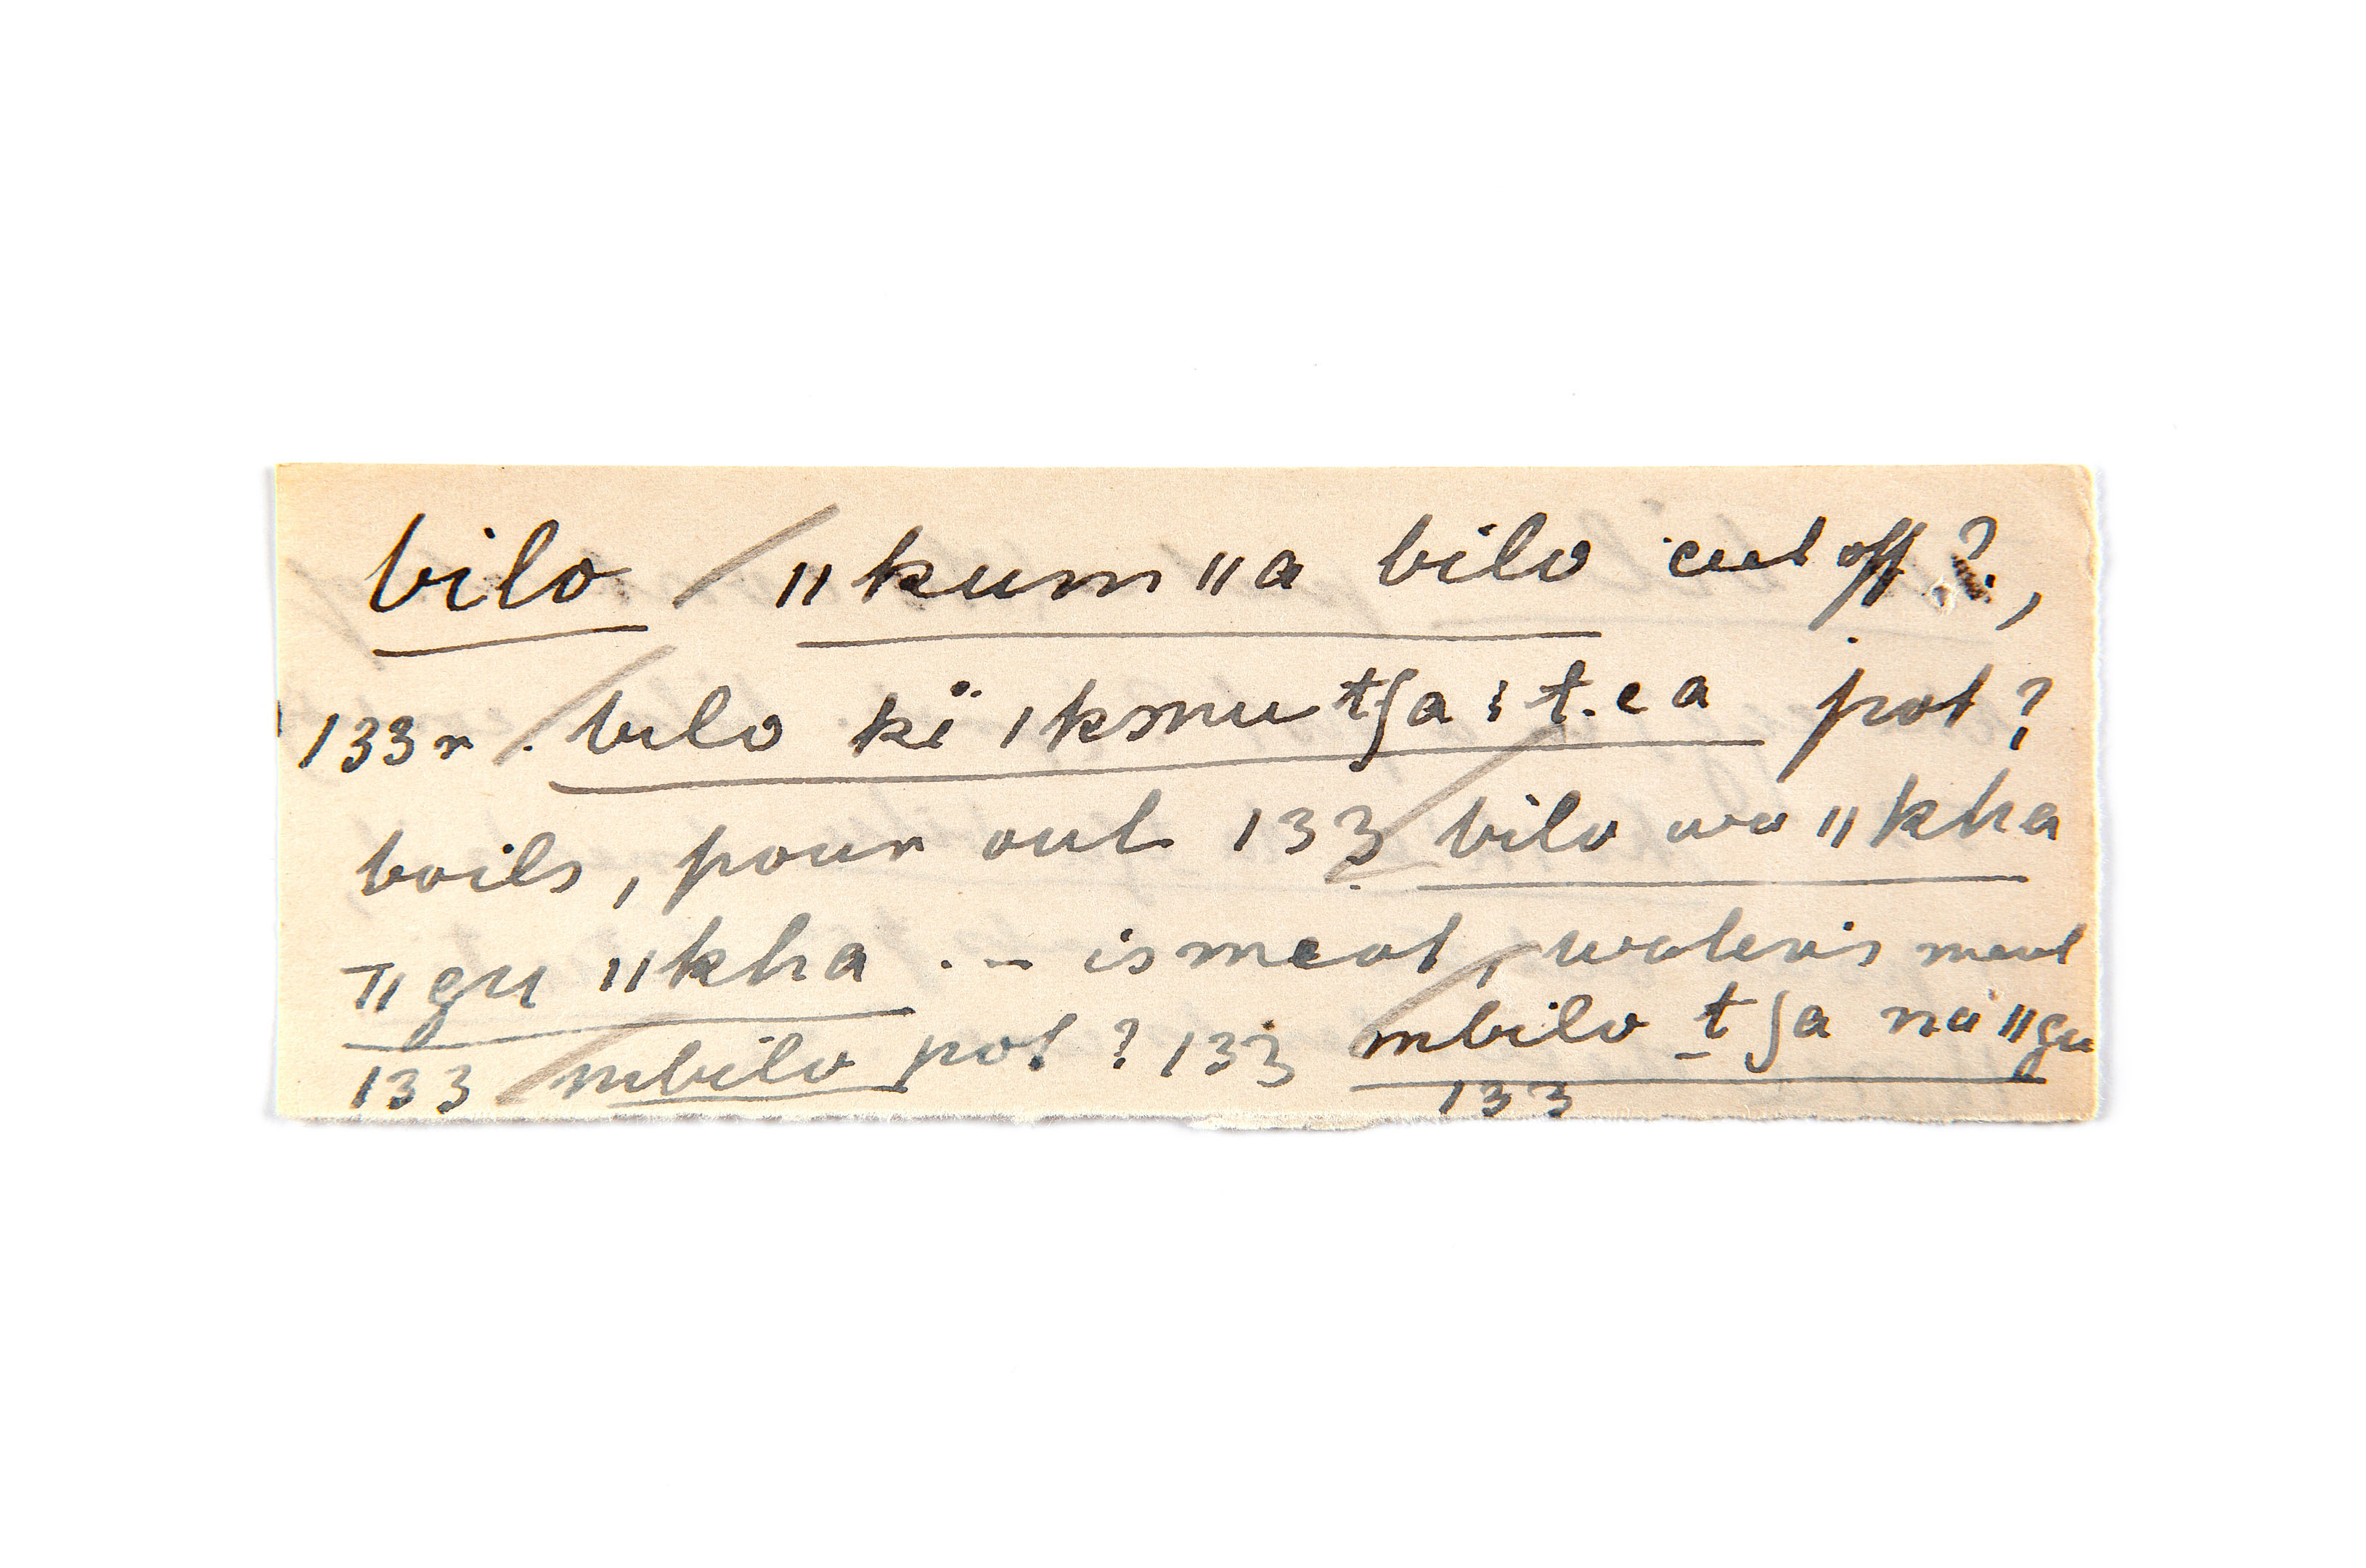 bilo / ǁkumǁa bilo cut off?,
133r. bilo kï ǀkmu tʃa ⁝ t.ca pot?
boils, pour out 133 bilo wa ǁkha
ǁgu ǁkha . – is meat, water's meat
133 mbilo pot? 133 mbilo ṯʃa na ǁgu
133